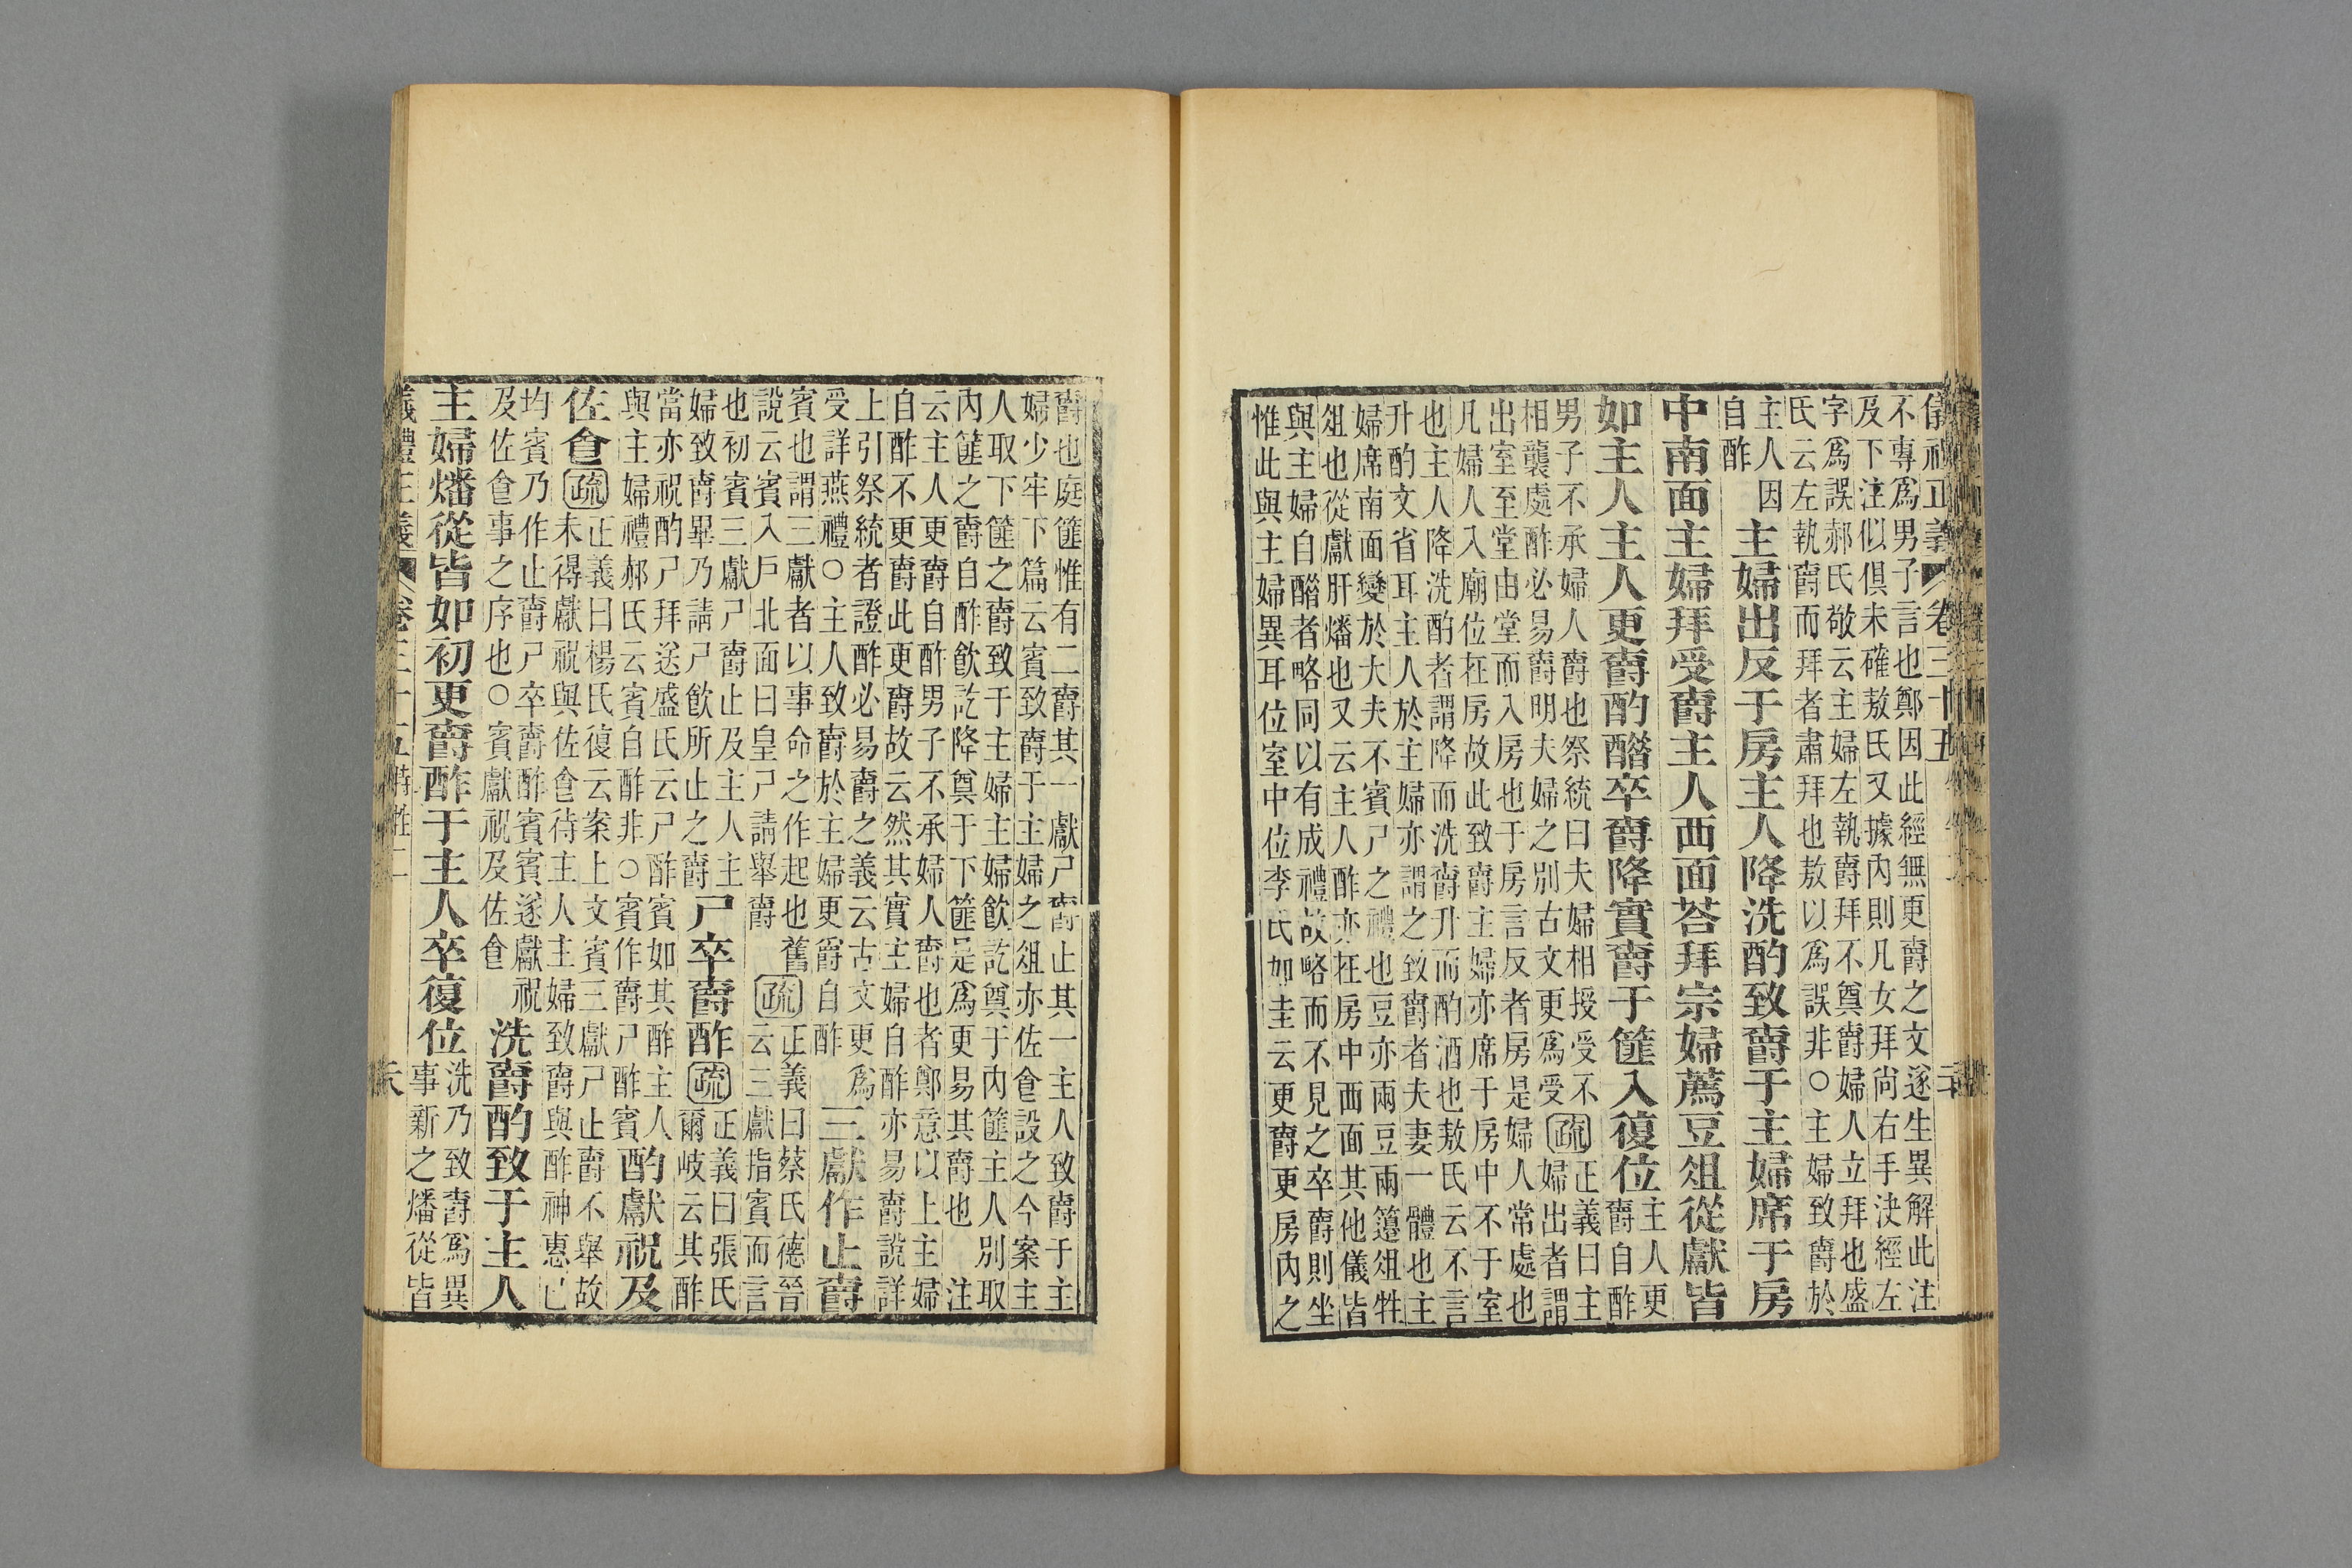 儀禮正義 卷三十五
不專爲男子言也鄭因此經無更爵之文遂生異解此注
及下注似俱未確敖氏又據內則凡女拜尚右手決經左
字爲誤郝氏敬云主婦左執爵拜不奠爵婦人立拜也盛
氏云左執爵而拜者肅拜也敖以爲誤非○主婦致爵於
主人因
自酢
主婦出反于房主人降洗酌致爵于主婦席于房
中南面主婦拜受爵主人西面荅拜宗婦薦豆俎從獻皆
如主人主人更爵酌醋卒爵降實爵于篚入復位
主人更
爵自酢
男子不承婦人爵也祭統曰夫婦相授受不
相襲處酢必易爵明夫婦之別古文更爲受
疏
正義曰主
婦出者謂
出室至堂由堂而入房也于房言反者房是婦人常處也
凡婦人入廟位在房故此致爵主婦亦席于房中不于室
也主人降洗酌者謂降而洗爵升而酌酒也敖氏云不言
升酌文省耳主人於主婦亦謂之致爵者夫妻一體也主
婦席南面變於大夫不賓尸之禮也豆亦兩豆兩籩俎牲
俎也從獻肝燔也又云主人酢亦在房中西面其他儀皆
與主婦自醋者略同以有成禮故略而不見之卒爵則坐
惟此與主婦異耳位室中位李氏如圭云更爵更房內之
爵也庭篚惟有二爵其一獻尸爵止其一主人致爵于主
婦少牢下篇云賓致爵于主婦之俎亦佐食設之今案主
人取下篚之爵致于主婦主婦飲訖奠于內篚主人別取
內篚之爵自酢飲訖降奠于下篚是爲更易其爵也 注
云主人更爵自酢男子不承婦人爵也者鄭意以上主婦
自酢不更爵此更爵故云然其實主婦自酢亦易爵說詳
上引祭統者證酢必易爵之義云古文更爲
受詳燕禮○主人致爵於主婦更爵自酢
三獻作止爵
賓也謂三獻者以事命之作起也舊
說云賓入戶北面曰皇尸請舉爵
疏
正義曰蔡氏德晉
云三獻指賓而言
也初賓三獻尸爵止及主人主
婦致爵畢乃請尸飲所止之爵
尸卒爵酢
疏
正義曰張氏
爾岐云其酢
當亦祝酌尸拜送盛氏云尸酢賓如其酢主人
與主婦禮郝氏云賓自酢非○賓作爵尸酢賓
酌獻祝及
佐食
疏
正義曰楊氏復云案上文賓三獻尸止爵不舉故
未得獻祝與佐食待主人主婦致爵與酢神惠已
均賓乃作止爵尸卒爵酢賓賓遂獻祝
及佐食事之序也○賓獻祝及佐食
洗爵酌致于主人
主婦燔從皆如初更爵酢于主人卒復位
洗乃致爵爲異
事新之燔從皆
儀禮正義 卷三十五 特牲二